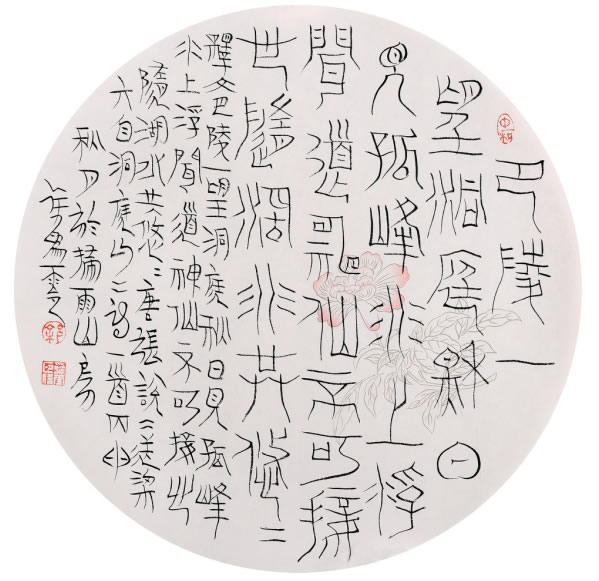 巴陵一
望洞庭秋日
見孤峰水上浮
聞道神仙不可接
心隨湖水共悠〻
釋巴陵一望洞庭秋日見孤峰
水上浮聞道神仙不可接心
隨湖水共悠〻唐張說〻送梁
六自洞庭山〻詩一首丙申
秋月於雨山房